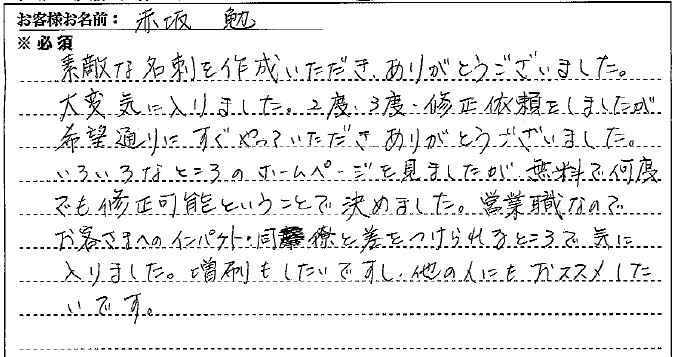 お客様お名前： 赤坂 勉
※必須
素敵な名刺を作成いただき、ありがとうございました。
大変気に入りました。2度、3度、修正依頼をしましたが
希望通りにすぐやっていただきありがとうございました。
いろいろなところのホームページを見ましたが、無料で何度
でも修正可能ということで決めました。営業職なので
お客さまへのインパクト・同僚と差をつけられるところで気に
入りました。増刷もしたいですし、他の人にもオススメした
いです。